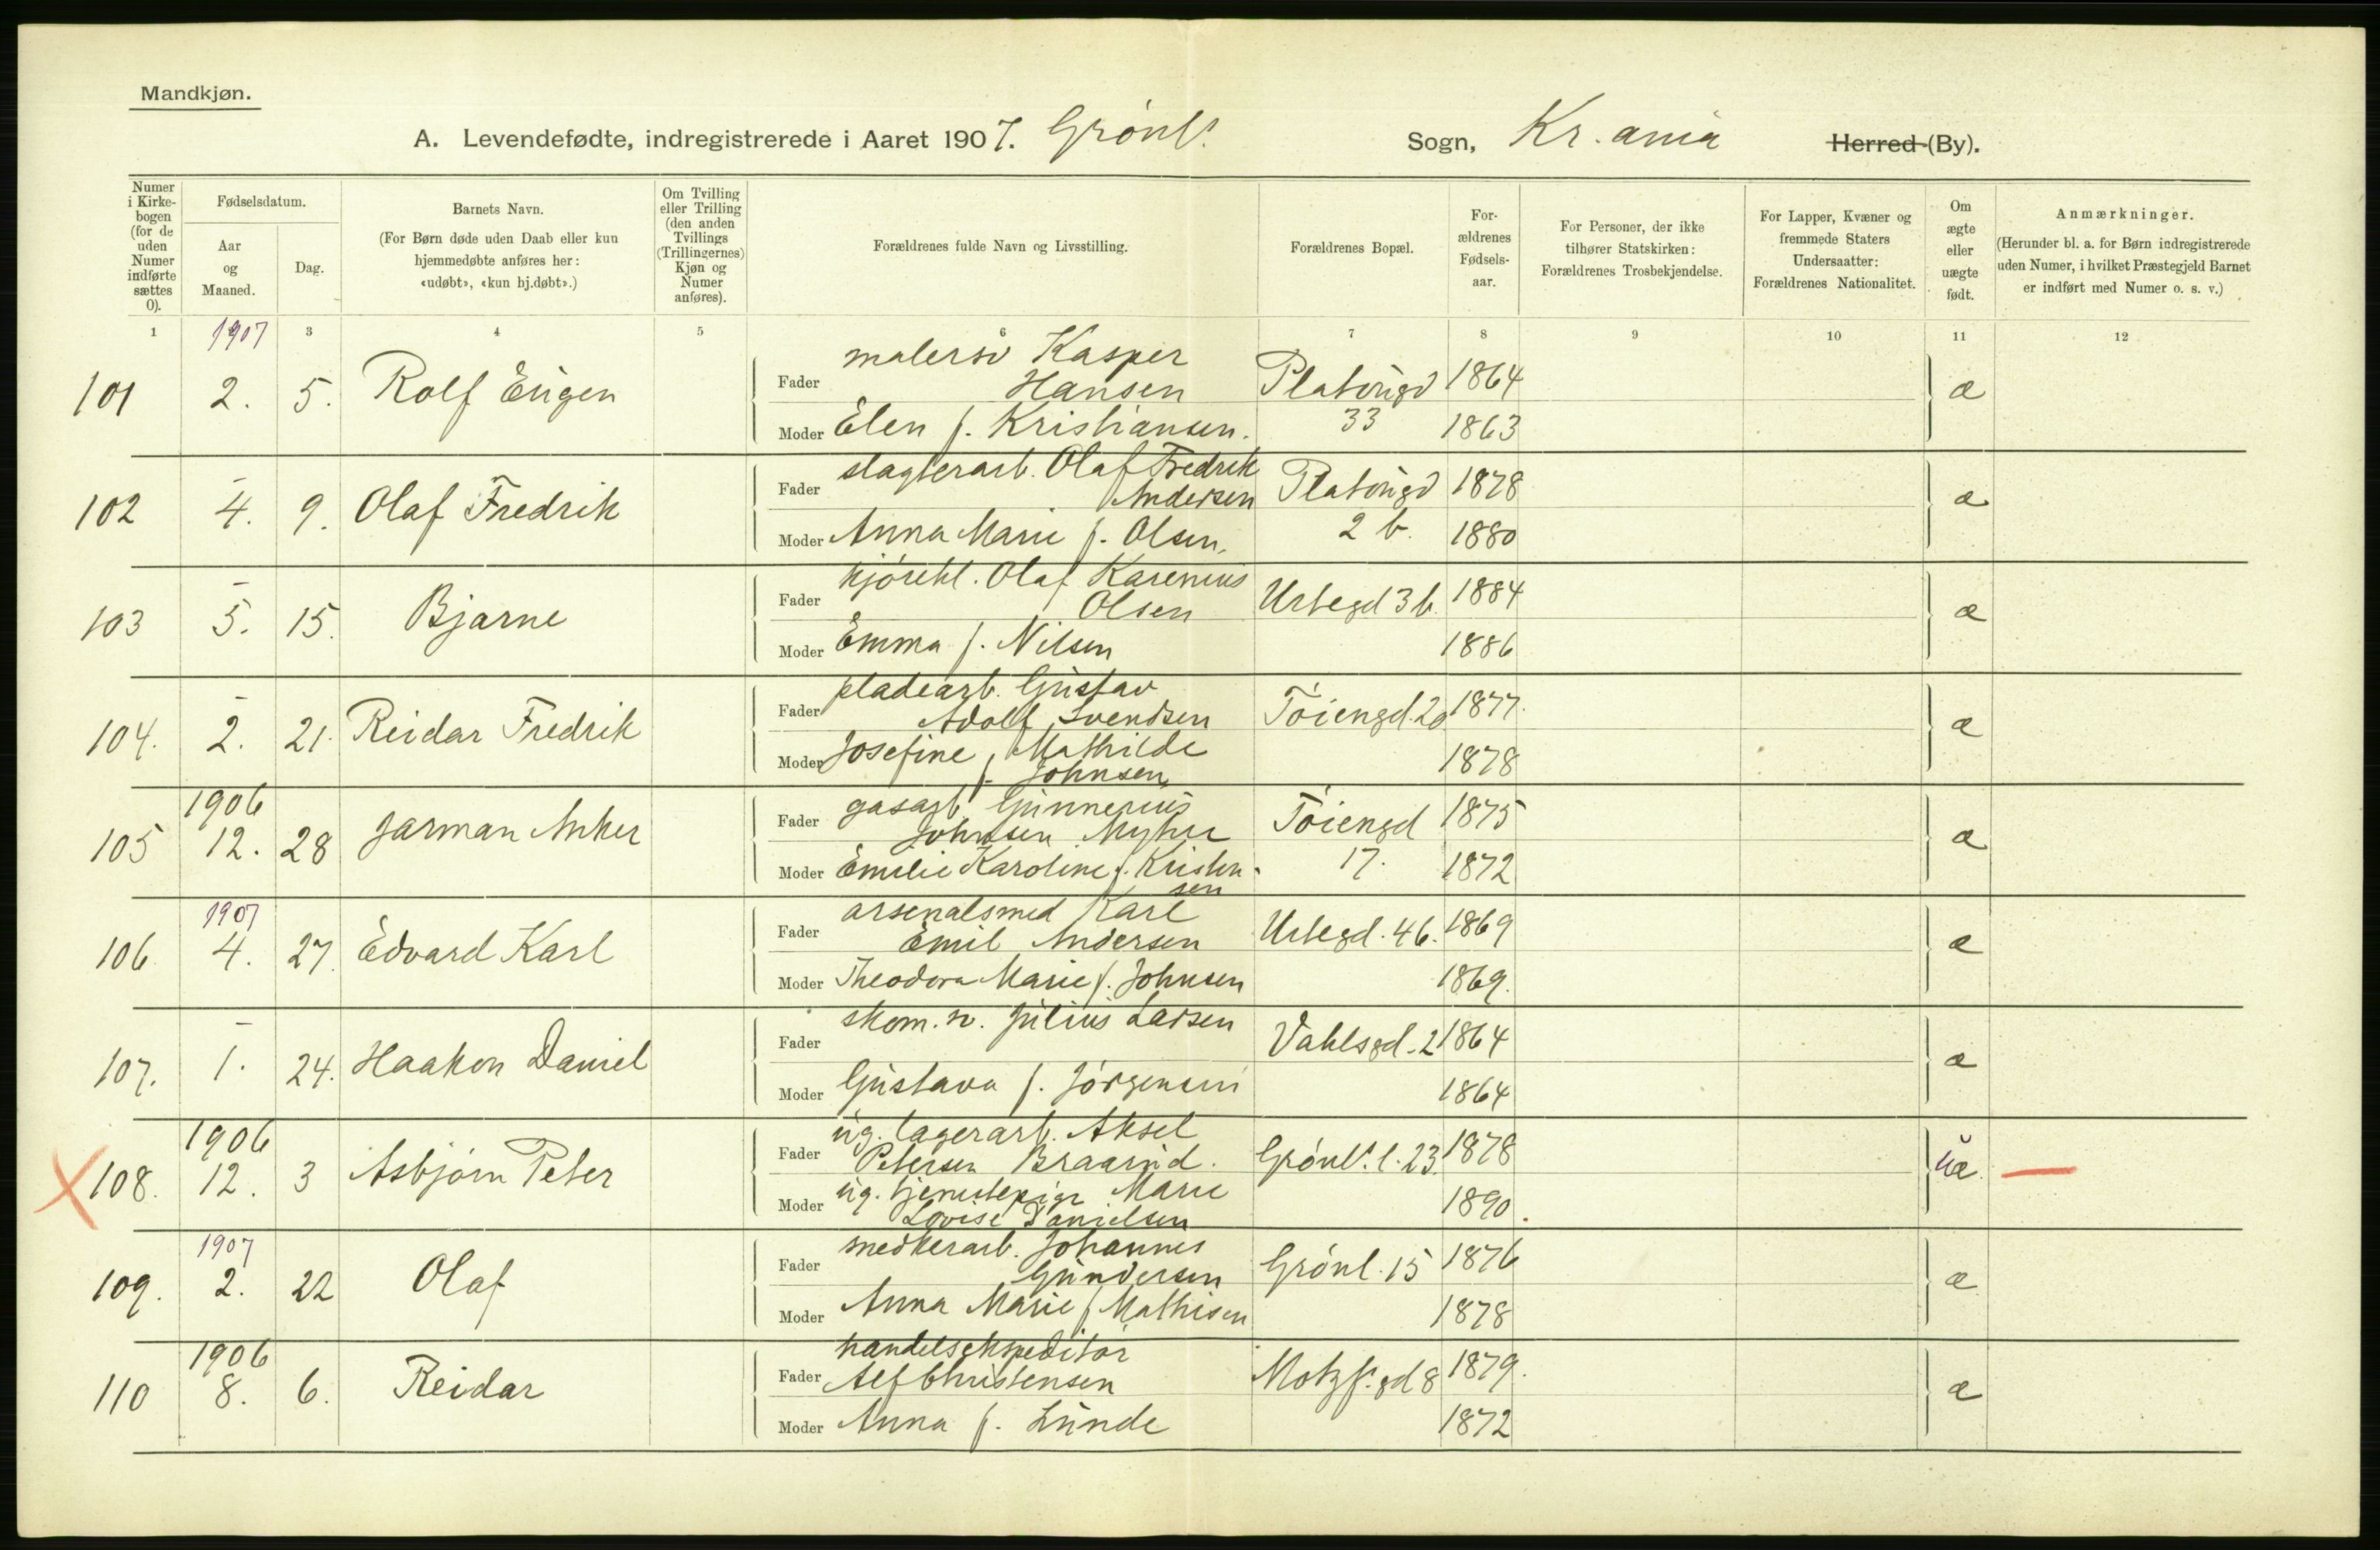 Mandkjøn.
A. Levendefødte, indregistrerede i Aaret 1907. Grønl. Sogn, Kr.ania Herred (By).
Numer i Kirke-bogen (for de uden Numer indførte sættes 0).
Fødselsdatum.
Aar og Maaned.
Dag.
Barnets Navn.
(For Børn døde uden Daab eller kun hjemmedøbte anføres her: «udøbt», «kun hj.døbt».)
Om Tvilling eller Trilling (den anden Tvillings (Trillingernes) Kjøn og Numer anføres).
Forældrenes fulde Navn og Livsstilling.
Forældrenes Bopæl.
For-ældrenes Fødsels-aar.
For Personer, der ikke tilhører Statskirken: Forældrenes Trosbekjendelse.
For Lapper, Kvæner og fremmede Staters Undersaatter: Forældrenes Nationalitet.
Om ægte eller uægte født.
Anmærkninger.
(Herunder bl. a. for Børn indregistrerede uden Numer, i hvilket Præstegjeld Barnet er indført med Numer o. s. v.)
1 3 4 5 6 7 8 9 10 11 12
1907
101 2. 5. Rolf Eugen
Fader malersv Kasper Hansen Platougd 1864 æ
Moder Elen f. Kristiansen. 33 1863
102 4. 9. Olaf Fredrik
Fader slagterarb. Olaf Fredrik Andersen Platougd 1878 æ
Moder Anna Marie f. Olsen. 2 b. 1880
103 5. 15. Bjarne
Fader kjørekl. Olaf Karenius Olsen Urtegd 3 b. 1884 æ
Moder Emma f. Nilsen 1886
104. 2. 21. Reidar Fredrik
Fader pladearb. Gustav Adolf Svendsen Tøiengd. 20 1877. æ
Moder Josefine Mathilde f. Johnsen 1878
1906
105 12. 28 Jarman Anker
Fader gasarb. Gunnerius Johnsen Myhre Tøiengd 1875 æ
Moder Emilie Karoline f. Kristen-sen 17. 1872
1907
106. 4. 27. Edvard Karl
Fader arsenalsmed Karl Emil Andersen Urtegd. 46. 1869 æ
Moder Theodora Marie f. Johnsen 1869.
107. 1. 24. Haakon Daniel
Fader skom. sv. Julius Larsen Vahlsgd. 2 1864 æ
Moder Gustava f. Jørgensen 1864
1906
108. 12. 3 Asbjørn Peter
Fader ug. lagerarb. Aksel Petersen Braarud. Grønl. l. 23. 1878 uæ.
Moder ug. tjenestepige Marie Lovise Danielsen 1890.
1907
109. 2. 22 Olaf
Fader snedkerarb. Johannes Gundersen Grønl. 15 1876 æ
Moder Anna Marie f. Mathisen 1878
1906
110 8. 6. Reidar
Fader handelsekspeditør Alf Christensen Motzf. gd 8 1879. æ
Moder Anna f. Lunde 1872